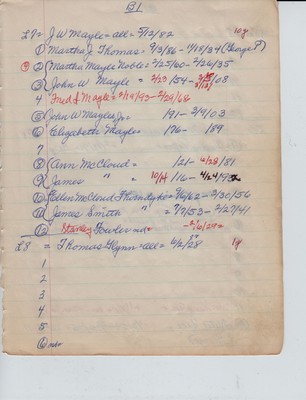 B1
L7 = J W Mayle = all = 5/12/82 10 g
① Martha J. Thomas = 9/3/86 - 11/18/34 (George P)
② Martha Mayle Noble = 2/25/60 - 2/26/35
③ John W Mayle = 2/23/54 - 08
4 Fred S Mayle = 2/19/93 - 2/29/68
⑤ John W Mayle, Jr = 1/91 - 2/9/03
⑥ Elizabeth Mayle = 176 - 189
7
⑧ Ann McCloud = 121 - 4/28/81
⑨ James " = 10/14 116 - 4/24/95
⑩ Ellen McCloud Thorndyke = 62 - 3/30/56
⑪ James Smith " = 7/7/53 - 2/27/41
⑫ Fowler
L8 = Thomas Glynn = all = 6/2/28 1 g
1
2
3
4
5
⑥